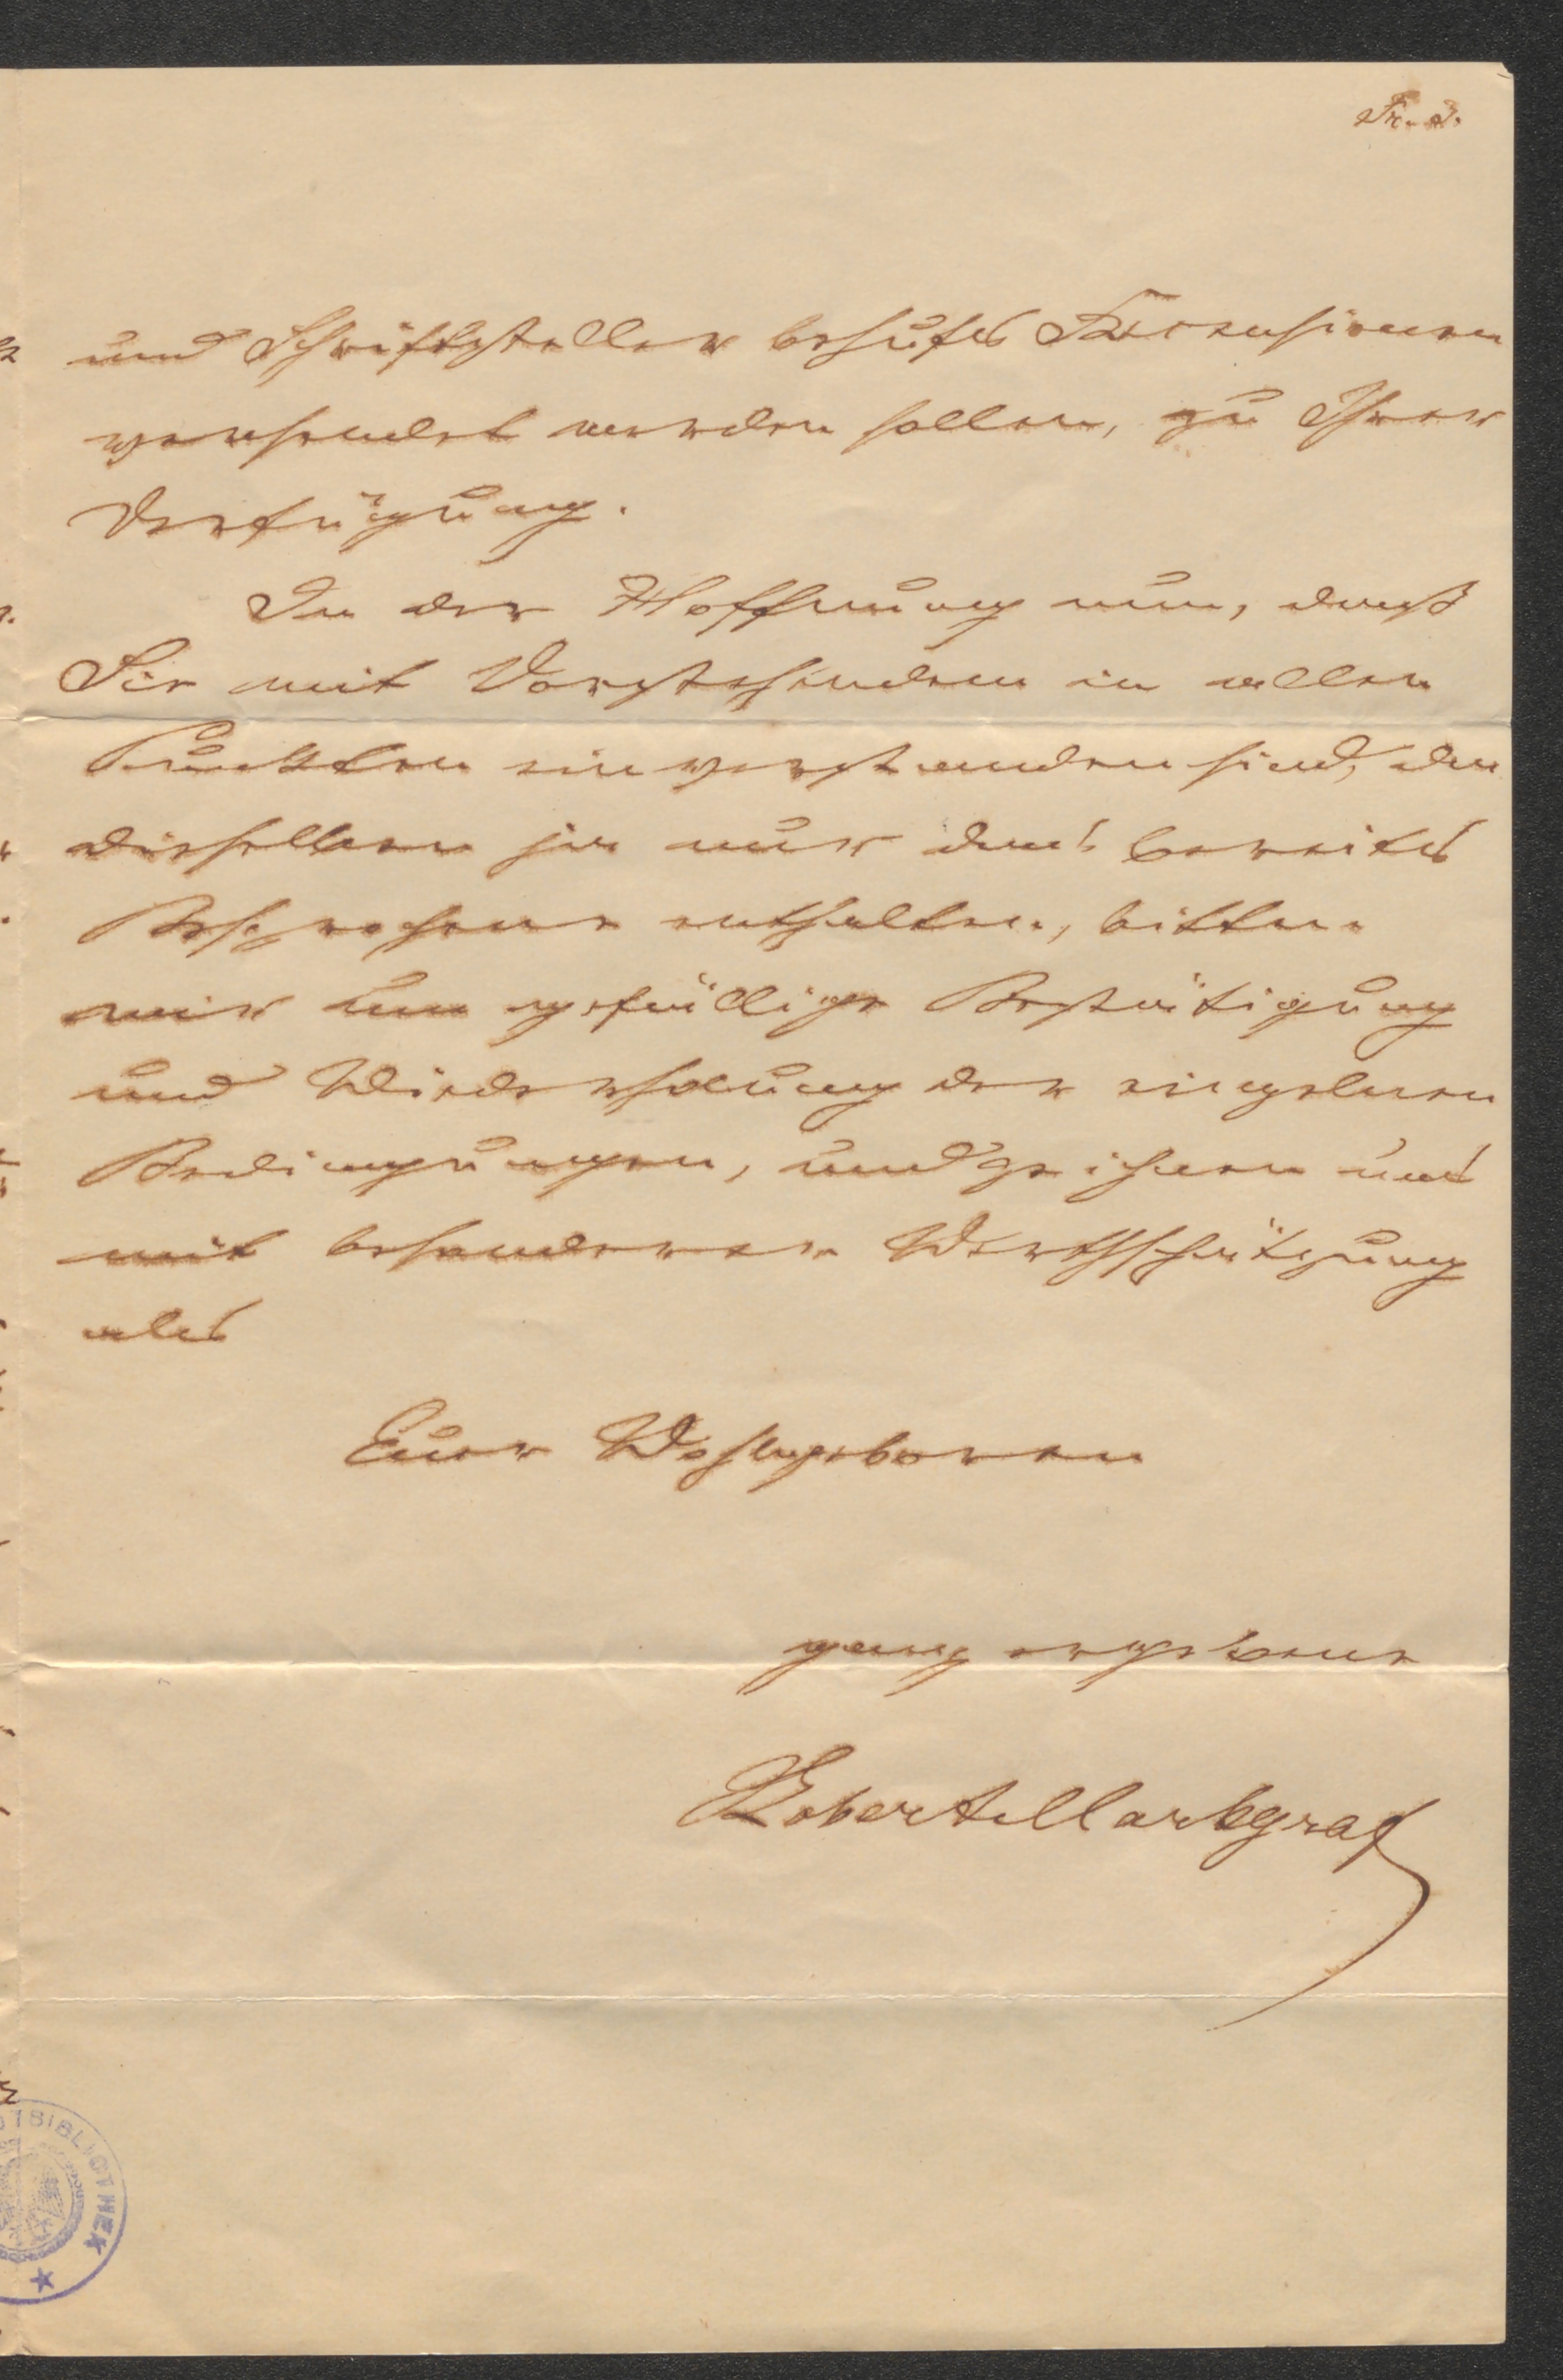 Fr. 2.
und Schriftsteller behufs Recensionen
versendet werden sollen, zu Ihrer
Verfügung.
In der Hoffnung nun, daß
Sie mit Vorstehendem in allen
Punkten einverstanden sind, da
dieselben ja nur das bereits
Besprochene enthalten, bitten
wir um gefällige Bestätigung
und Wiederholung der einzelnen
Bedingungen, und zeichnen uns
mit besonderer Werthschätzung
als
Euer Wohlgeboren
ganz ergebene
Robert Markgraf
BIBLIOTHEK